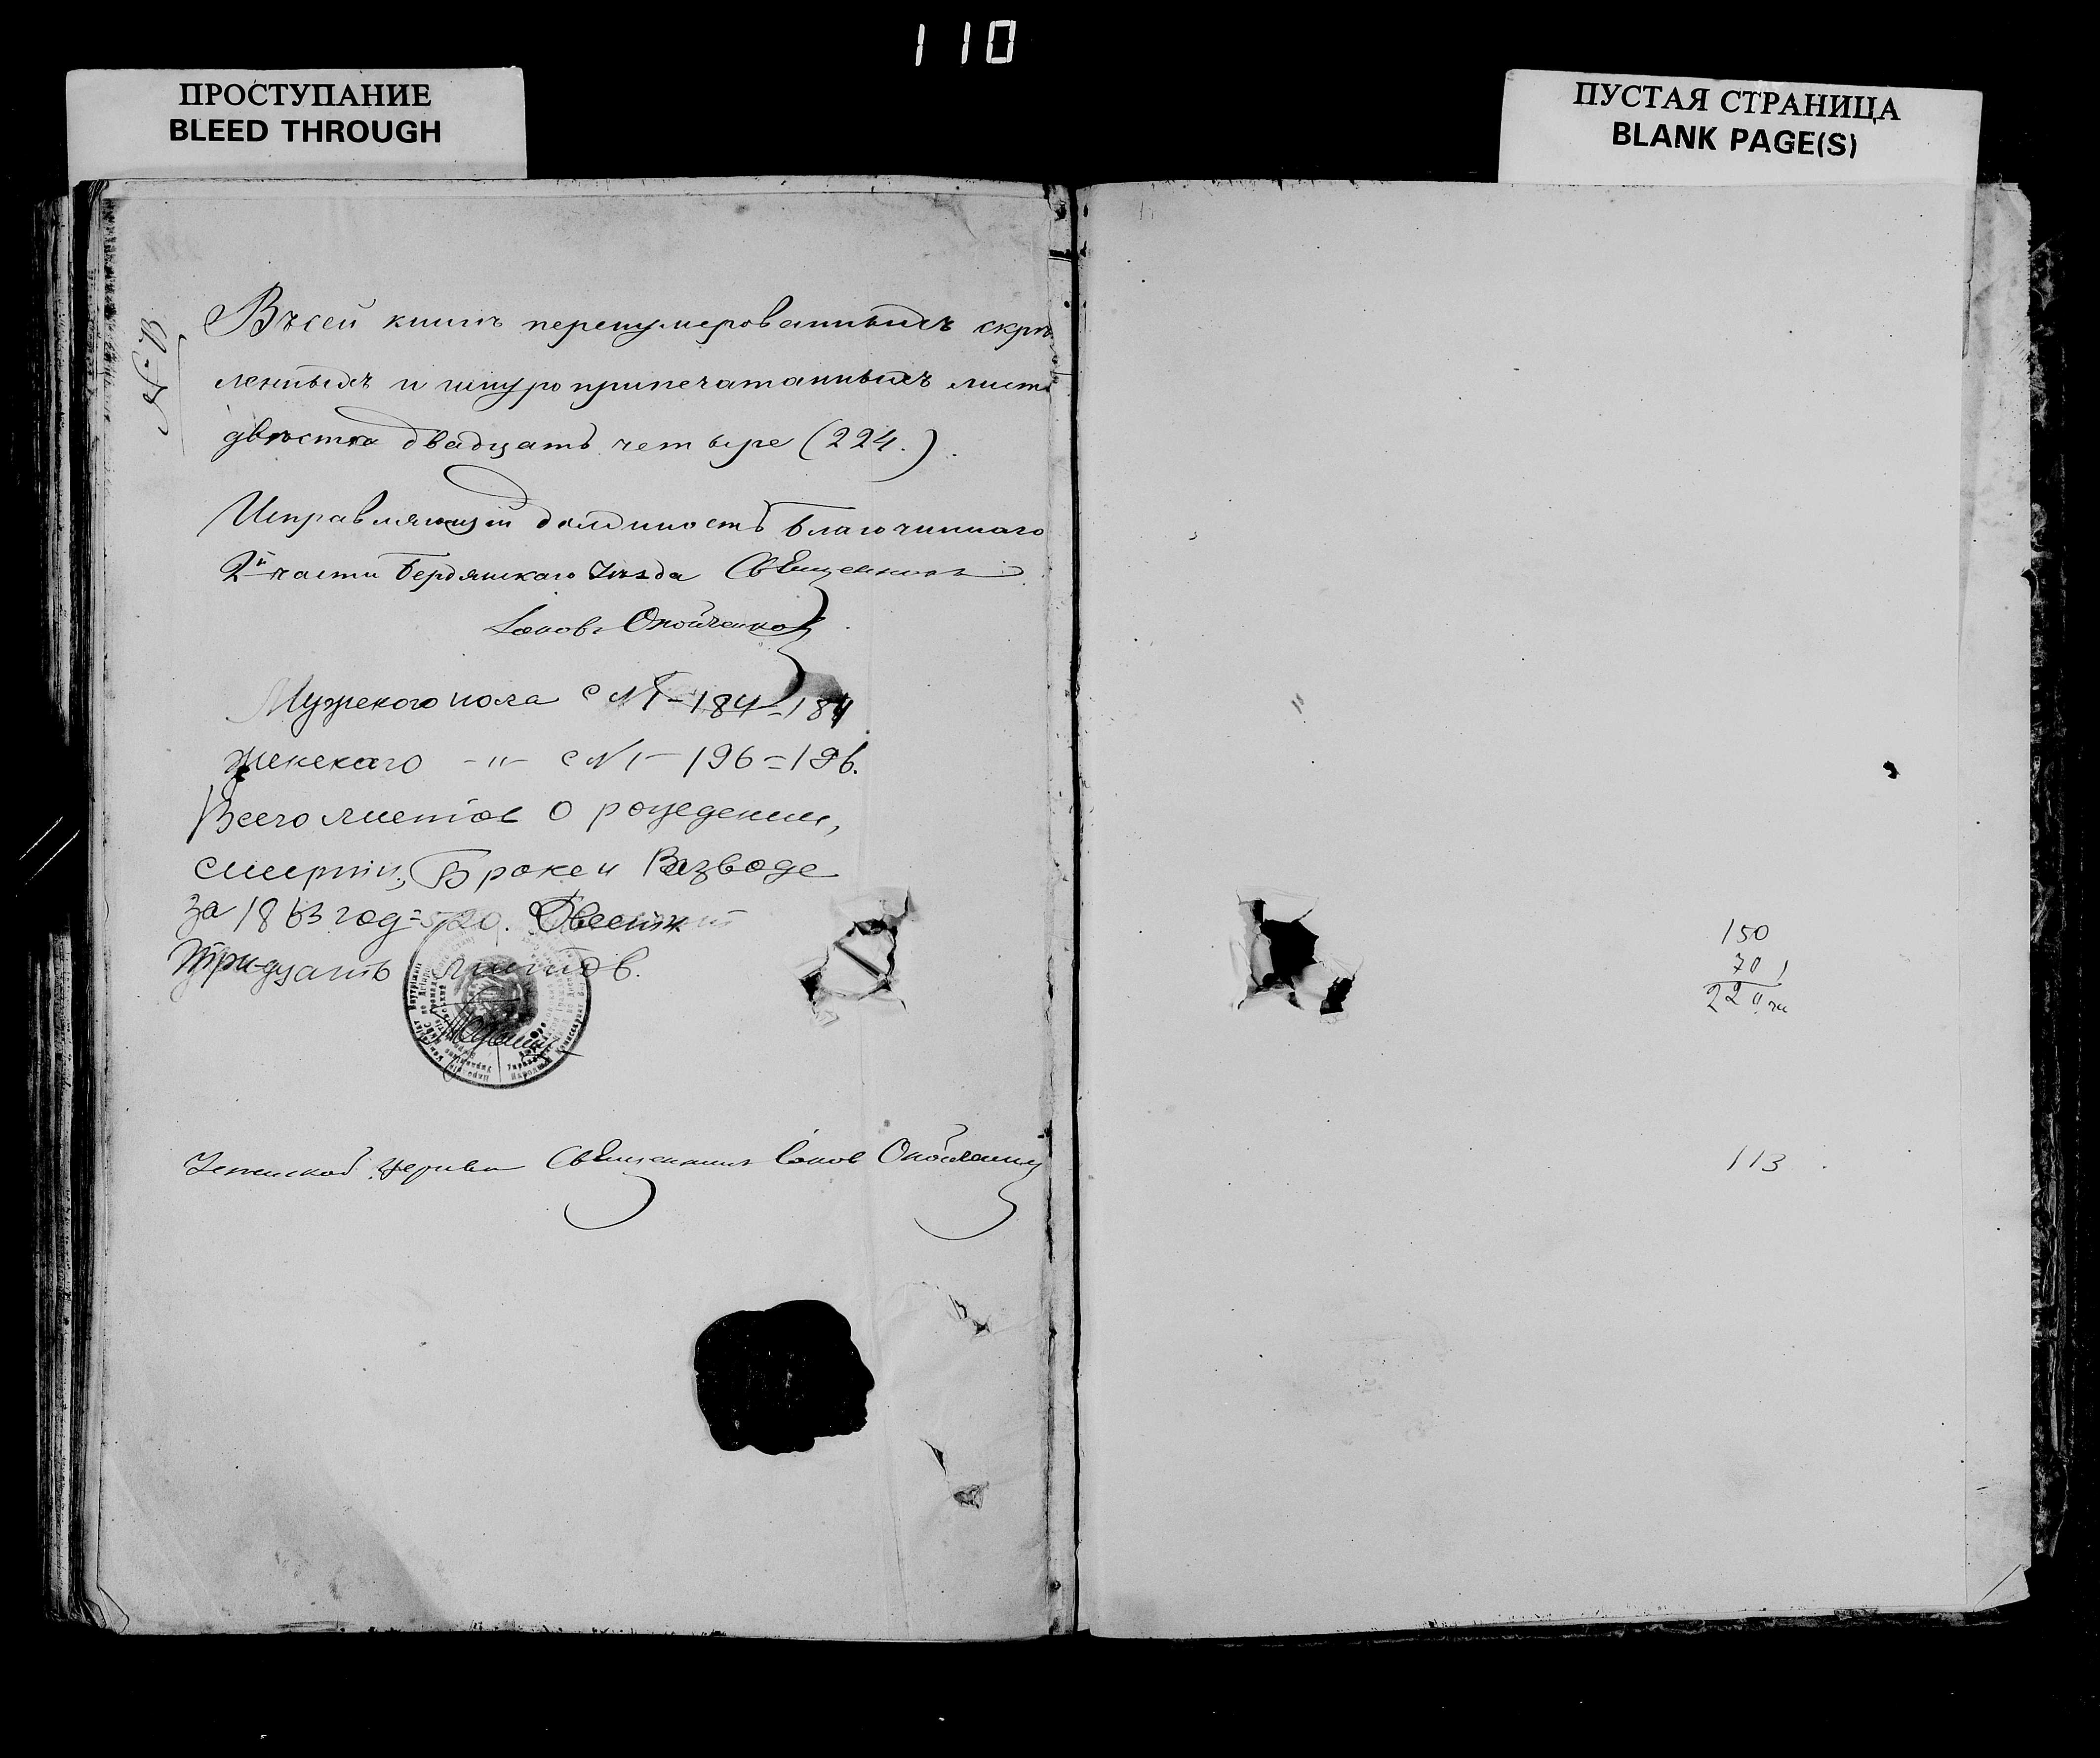 110
ПРОСТУПАНИЕ
BLEED THROUGH
ПУСТАЯ СТРАНИЦА
BLANK PAGE(S)
Въ сей книгѣ перенумерованныхъ скрѣп
ленныхъ и шнуроприпечатанныхъ лист
двѣсти двадцать четыре (224.)
Исправляющій должность Благочиннаго
2й части Бердянскаго Уѣзда Священникъ
Іаковъ
Мужского пола с №1-184=184
Женского -"- с №1-196=196.
Всего листов о рождении,
смерти, Браке и Разводе
за 1863 год=
Тридцать листов.
церкви Священникъ Іаковъ
150
70
113